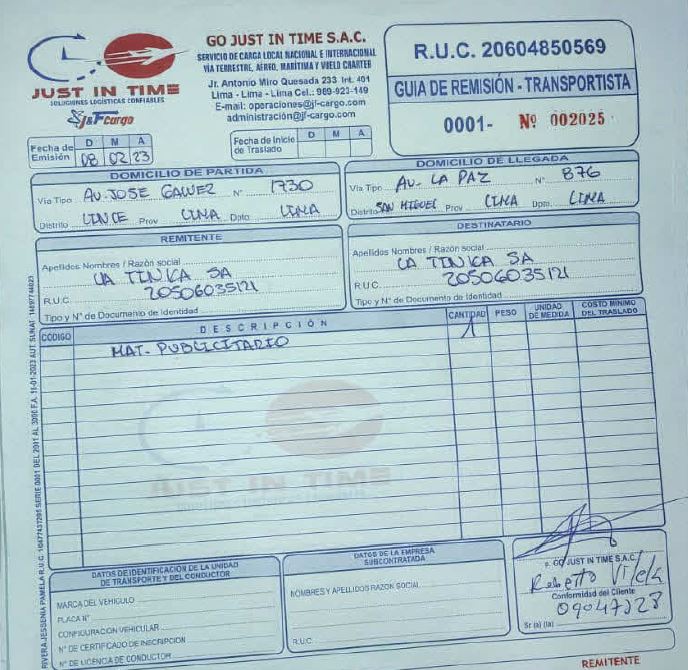 JUST IN TIME
SOLUCIONES LOGÍSTICAS CONFIABLES
J&F cargo
GO JUST IN TIME S.A.C.
SERVICIO DE CARGA LOCAL NACIONAL E INTERNACIONAL
VÍA TERRESTRE, AÉREO, MARÍTIMA Y VUELO CHARTER
Jr. Antonio Miro Quesada 233 Int. 401
Lima - Lima - Lima Cel.: 989-923-149
E-mail: operaciones@jf-cargo.com
administración@jf-cargo.com
R.U.C. 20604850569
GUIA DE REMISIÓN - TRANSPORTISTA
0001- Nº 002025
Fecha de Emisión D M A
08 02 23
Fecha de Inicio de Traslado D M A
DOMICILIO DE PARTIDA
Vía Tipo AV. JOSE GALVEZ Nº 1730
Distrito LINCE Prov LIMA Dpto. LIMA
DOMICILIO DE LLEGADA
Vía Tipo AV. LA PAZ Nº 876
Distrito SAN MIGUEL Prov LIMA Dpto. LIMA
REMITENTE
Apellidos Nombres / Razón social
LA TINKA SA
R.U.C. 20506035121
Tipo y N° de Documento de Identidad
DESTINATARIO
Apellidos Nombres / Razón social
LA TINKA SA
R.U.C. 20506035121
Tipo y N° de Documento de Identidad
CÓDIGO DESCRIPCIÓN CANTIDAD PESO UNIDAD DE MEDIDA COSTO MÍNIMO DEL TRASLADO
MAT. PUBLICITARIO 1
JUST IN TIME
DATOS DE IDENTIFICACIÓN DE LA UNIDAD DE TRANSPORTE Y DEL CONDUCTOR
MARCA DEL VEHICULO
PLACA N°
CONFIGURACIÓN VEHICULAR
N° DE CERTIFICADO DE INSCRIPCION
N° DE LICENCIA DE CONDUCTOR
DATOS DE LA EMPRESA SUBCONTRATADA
NOMBRES Y APELLIDOS RAZON SOCIAL
R.U.C.
p. GO JUST IN TIME S.A.C.
Roberto Vilela
Conformidad del Cliente
Sr (a) (ta)
REMITENTE